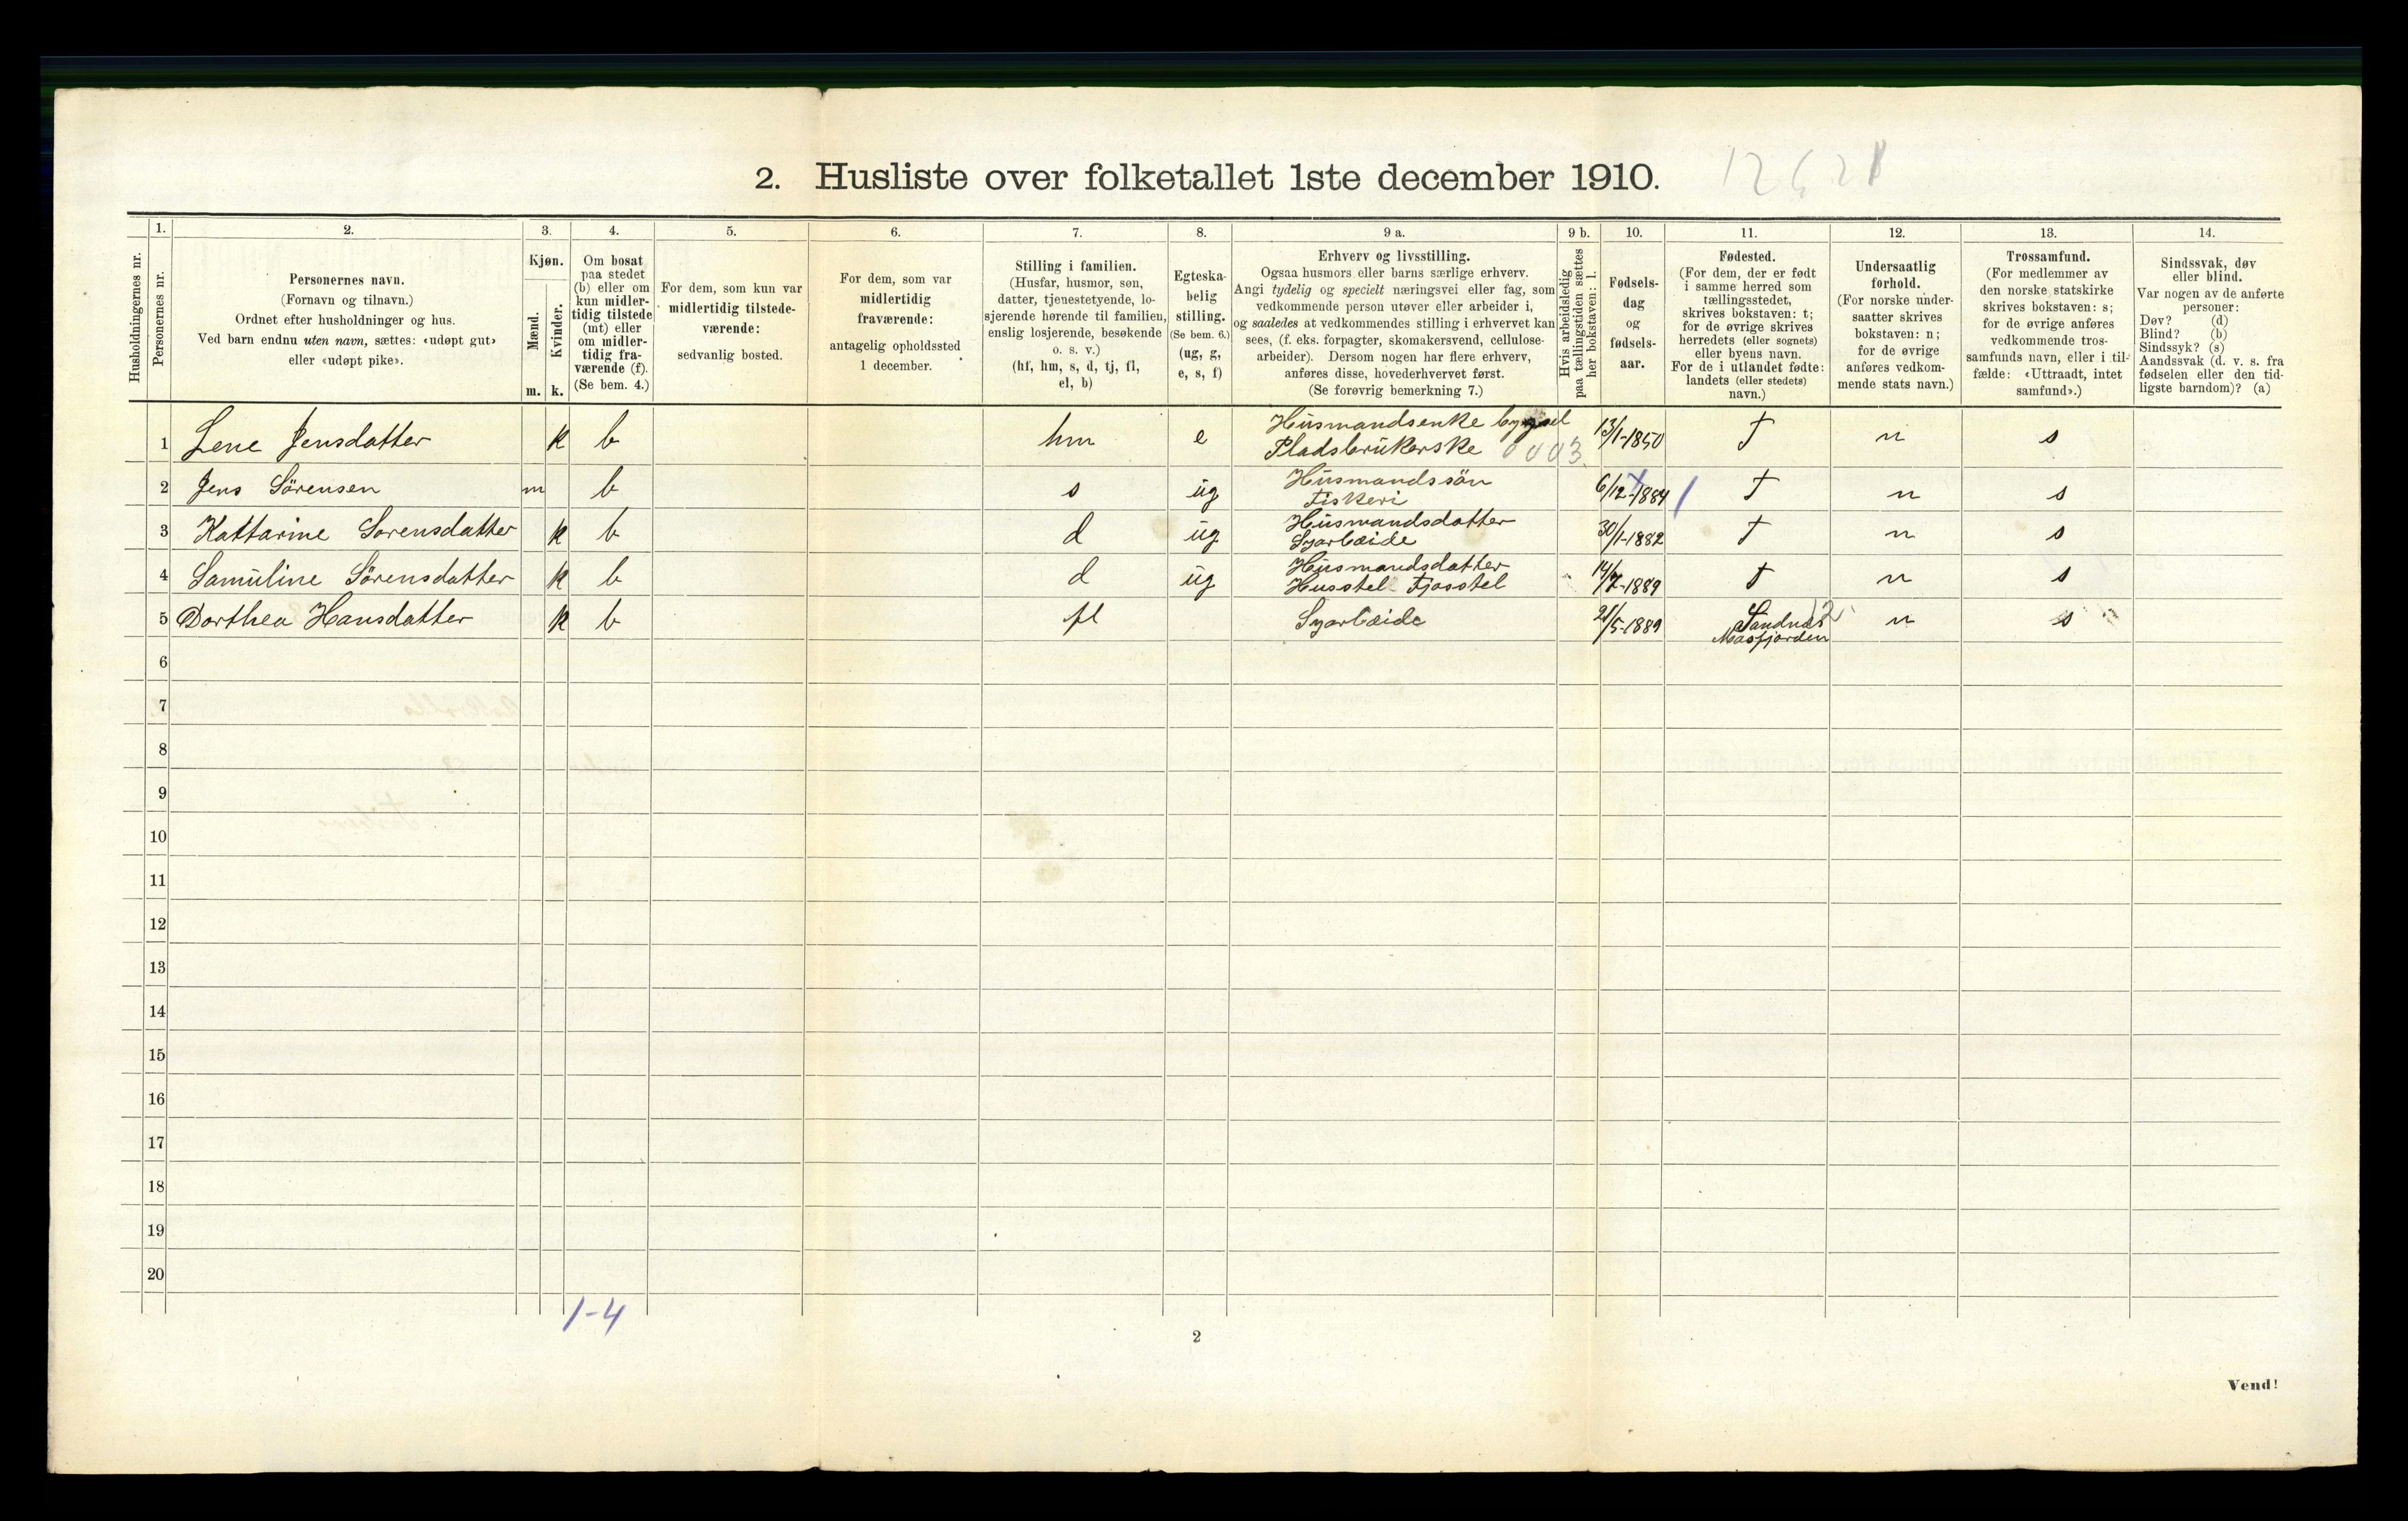 2. Husliste over folketallet 1ste december 1910.
Husholdningernes nr.
1.
Personernes nr.
2.
Personernes navn.
(Fornavn og tilnavn.)
Ordnet efter husholdninger og hus.
Ved barn endnu uten navn, sættes: «udøpt gut»
eller «udøpt pike».
3.
Kjøn.
Mænd.
Kvinder.
m. k.
4.
Om bosat
paa stedet
(b) eller om
kun midler-
tidig tilstede
(mt) eller
om midler-
tidig fra-
værende (f).
(Se bem. 4.)
5.
For dem, som kun var
midlertidig tilstede-
værende:
sedvanlig bosted.
6.
For dem, som var
midlertidig
fraværende:
antagelig opholdssted
1 december.
7.
Stilling i familien.
(Husfar, husmor, søn,
datter, tjenestetyende, lo-
sjerende hørende til familien,
enslig losjerende, besøkende
o. s. v.)
(hf, hm, s, d, tj, fl,
el, b)
8.
Egteska-
belig
stilling.
(Se bem. 6.)
(ug, g,
e, s, f)
9 a.
Erhverv og livsstilling.
Ogsaa husmors eller barns særlige erhverv.
Angi tydelig og specielt næringsvei eller fag, som
vedkommende person utøver eller arbeider i,
og saaledes at vedkommendes stilling i erhvervet kan
sees, (f. eks. forpagter, skomakersvend, cellulose-
arbeider). Dersom nogen har flere erhverv,
anføres disse, hovederhvervet først.
(Se forøvrig bemerkning 7.)
9 b.
Hvis arbeidsledig
paa tællingstiden sættes
her bokstaven: l.
10.
Fødsels-
dag
og
fødsels-
aar.
11.
Fødested.
(For dem, der er født
i samme herred som
tællingsstedet,
skrives bokstaven: t;
for de øvrige skrives
herredets (eller sognets)
eller byens navn.
For de i utlandet fødte:
landets (eller stedets)
navn.)
12.
Undersaatlig
forhold.
(For norske under-
saatter skrives
bokstaven: n;
for de øvrige
anføres vedkom-
mende stats navn.)
13.
Trossamfund.
(For medlemmer av
den norske statskirke
skrives bokstaven: s;
for de øvrige anføres
vedkommende tros-
samfunds navn, eller i til-
fælde: «Uttraadt, intet
samfund».)
14.
Sindssvak, døv
eller blind.
Var nogen av de anførte
personer:
Døv? (d)
Blind? (b)
Sindssyk? (s)
Aandssvak (d. v. s. fra
fødselen eller den tid-
ligste barndom)? (a)
1 Lene Jensdatter k b hm e Husmandsenke bygsel
Pladsbrukerske 0003 13/1-1850 t n s
2 Jens Sörensen m b s ug Husmandssön
Fiskeri 6/12-1884 t n s
3 Kattarine Sorensdatter k b d ug Husmandsdatter
Syarbeide 30/1-1882 t n s
4 Samuline Sörensdatter k b d ug Husmandsdatter
Husstel Fjosstel 14/7-1889 t n s
5 Dorthea Hansdatter k b fl Syarbeide 21/5-1889 Sandnes
Masfjorden n s
6
7
8
9
10
11
12
13
14
15
16
17
18
19
20
1-4
2
Vend!